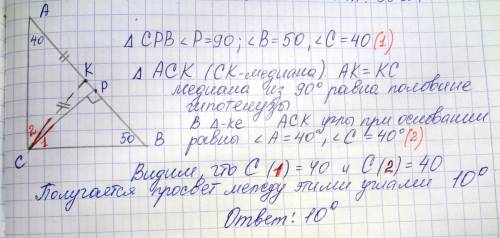 A
40
K
P
2
1
C
50
B
Δ CPB ∠P=90; ∠B=50, ∠C=40(1)
Δ ACK (CK-медиана). AK=KC
медиана из 90° равна половине
гипотенузы
В Δ-ке ACK углы при основании
равны ∠A=40°, ∠C=40°(2)
Видим, что C(1)=40 и C(2)=40
Получается просвет между этими углами 10°
Ответ: 10°